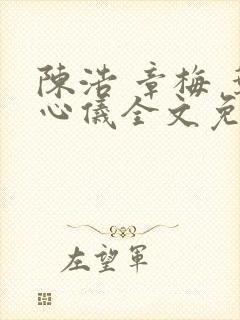 陳浩 章梅
心儀全文免
左望軍